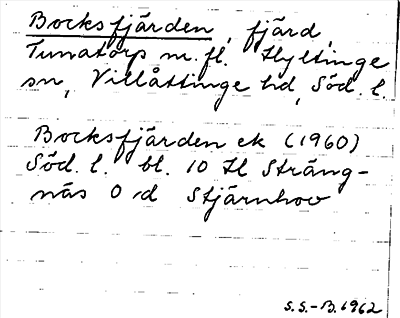 Bocksfjärden, fjärd,
Tunatorp m.fl. Hyltinge
sn, Villåttinge hd, Söd. l.
Bocksfjärden ek (1960)
Söd. l. bl. 10 H Sträng-
näs 0 d Stjärnhov
S.S.-B. 1962